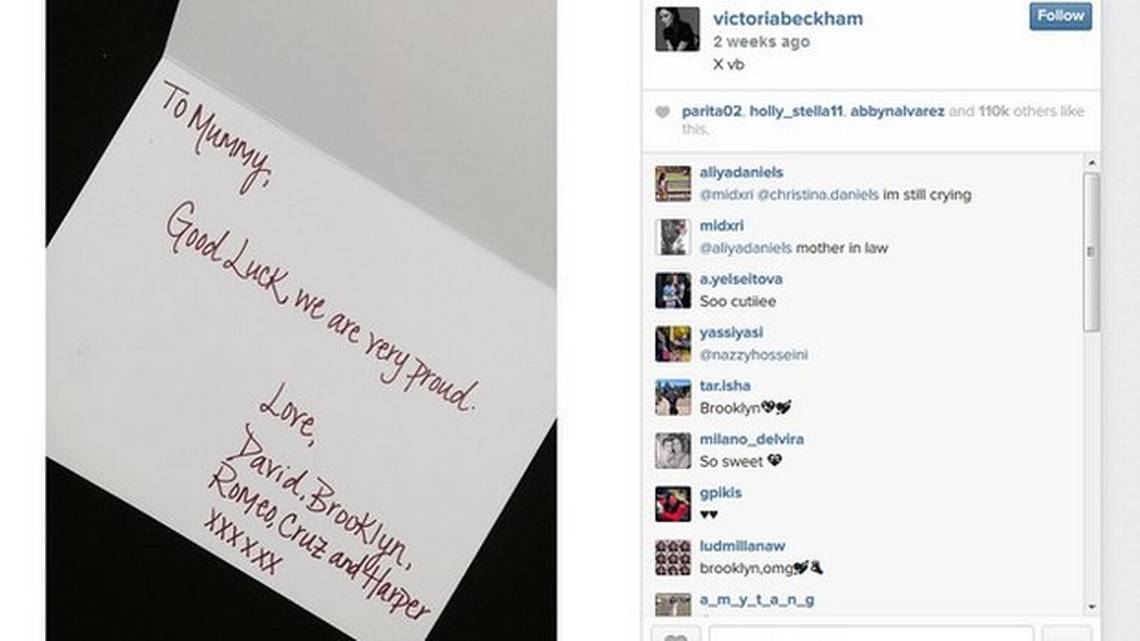 To Mummy,
Good Luck, we are very proud.
Love,
David, Brooklyn,
Romeo, Cruz and Harper
xxxxxx
victoriabeckham
Follow
2 weeks ago
X vb
parita02, holly_stella11, abbynalvarez and 110k others like
this.
aliyadaniels
@midxri @christina.daniels im still crying
midxri
@aliyadaniels mother in law
a.yelseitova
Soo cutiiee
yassiyasi
@nazzyhosseini
tar.isha
Brooklyn
milano_delvira
So sweet
gpikis
♥♥
ludmillanaw
brooklyn,omg
a_m_y_t_a_n_g